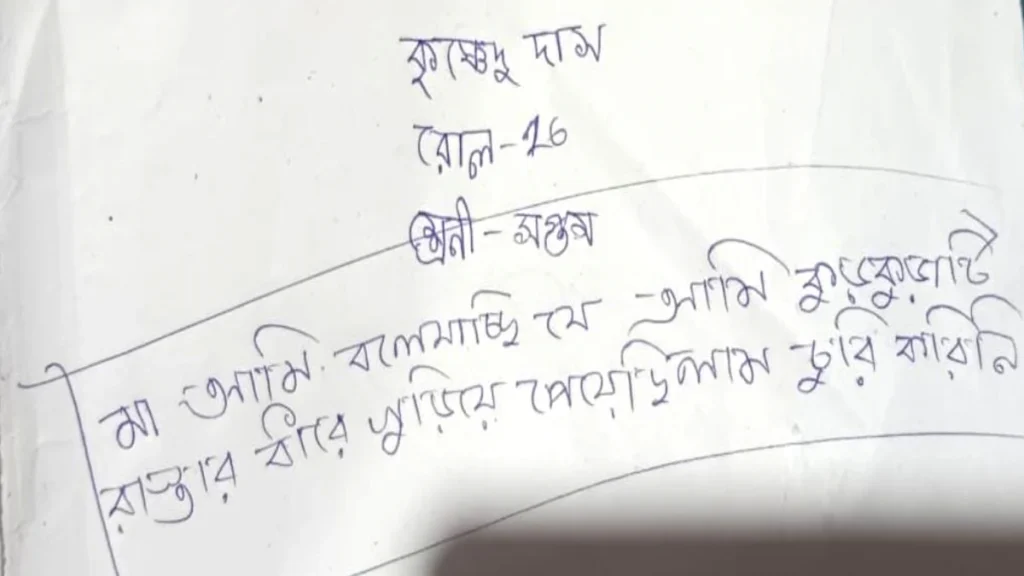 কৃষ্ণেন্দু দাস
রোল-২৬
শ্রেনী-সপ্তম
মা আমি বলেযাচ্ছি যে আমি কুড়কুড়াটি
রাস্তার ধারে কুড়িয়ে পেয়েছিলাম চুরি করিনি